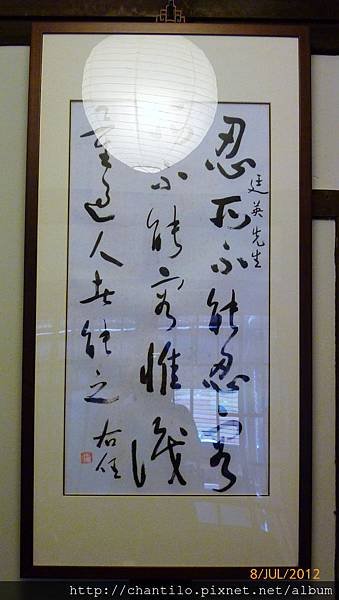 忍所不能忍容
廷英先生
所不能容惟識
量過人者能之
右任
8/JUL/2012
http://chantilo.pixnet.net/album